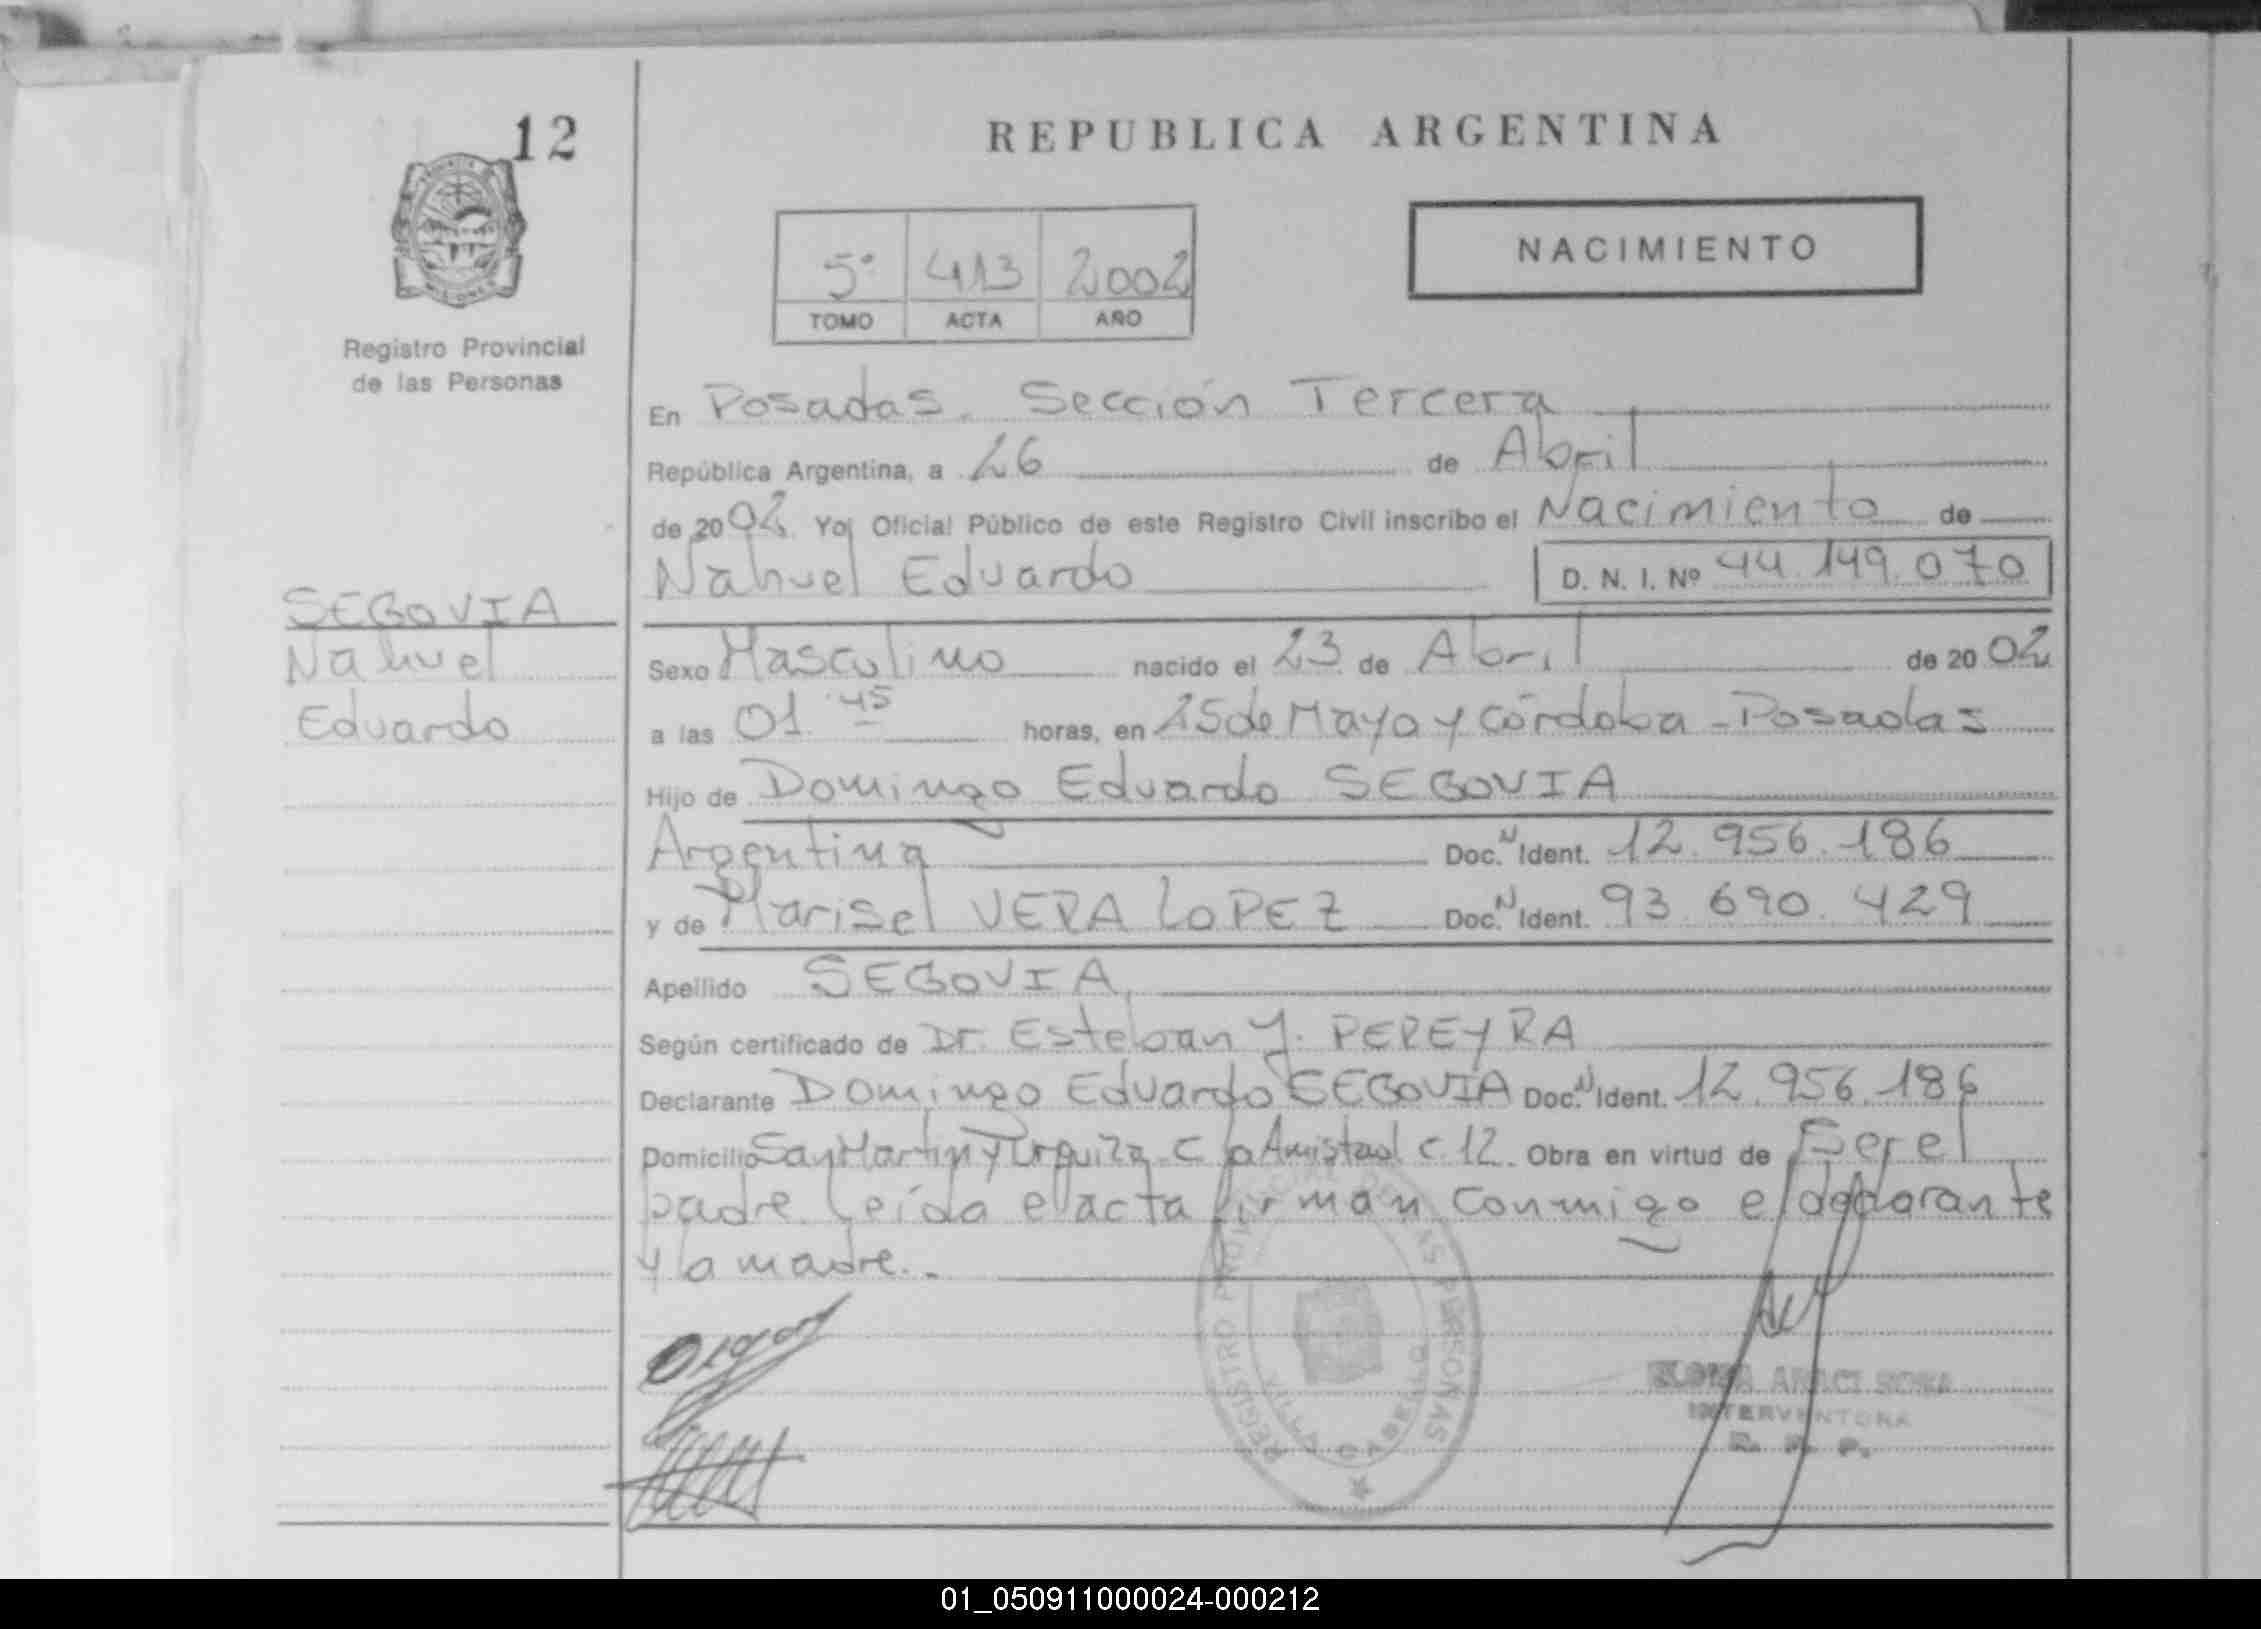 12
REPUBLICA ARGENTINA
NACIMIENTO
5º 413 2002
TOMO ACTA AÑO
Registro Provincial
de las Personas
En Posadas. Sección Tercera
República Argentina, a 26 de Abril
de 2002. Yo, Oficial Público de este Registro Civil inscribo el Nacimiento de
Nahuel Eduardo D. N. I. Nº 44.149.070
SEGOVIA
Nahuel
Eduardo
Sexo Masculino nacido el 23 de Abril de 2002
a las 01.45 horas, en 25 de Mayo y Córdoba - Posadas
Hijo de Domingo Eduardo SEGOVIA
Argentina Doc. N Ident. 12.956.186
y de Marisel VERA LOPEZ Doc. N Ident. 93.690.429
Apellido SEGOVIA
Según certificado de Dr. Esteban J. PEREYRA
Declarante Domingo Eduardo SEGOVIA Doc. N Ident. 12.956.186
Domicilio San Martin y Urquiza C la Amistad c. 12. Obra en virtud de Ser el
padre. Leída el acta firman conmigo el declarante
y la madre..
REGISTRO PROVINCIAL DE LAS PERSONAS
VILLA CABELLO
ARACI SOSA
INTERVENTORA
R. P. P.
01_050911000024-000212